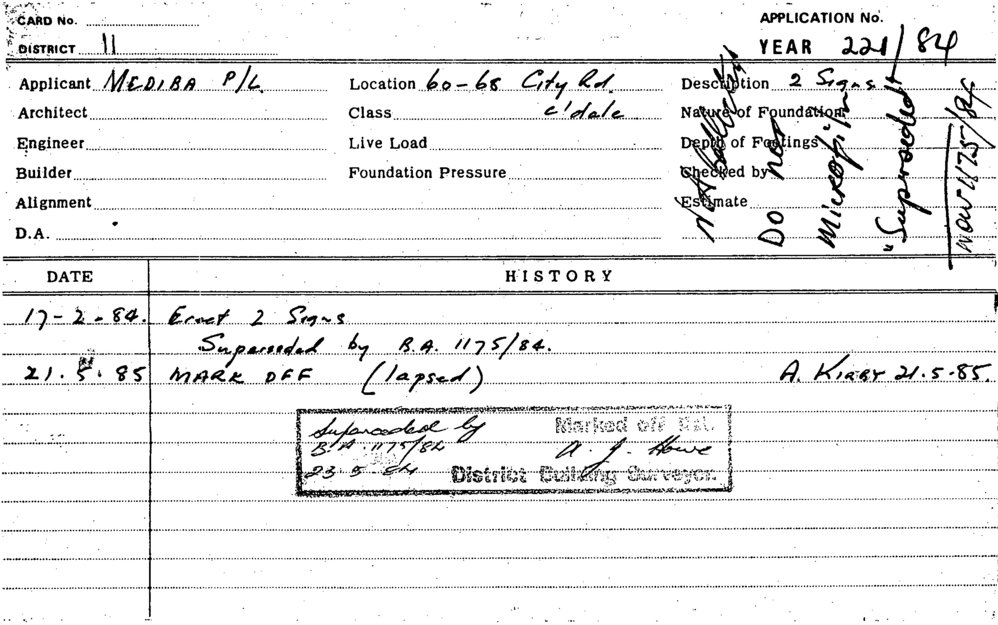 CARD No.
APPLICATION No.
DISTRICT 11
YEAR 221/84
Applicant MEDIBA P/L.
Location 60-68 City Rd.
Description 2 Signs
Architect
Class c'dale
Nature of Foundation
Engineer
Live Load
Depth of Footings
Builder
Foundation Pressure
Checked by
Alignment
Estimate
D.A.
Not
DO not
Microfilm
"Superseded"
NOW 1175/84
DATE
HISTORY
17-2-84. Erect 2 Signs
Superseded by B.A. 1175/84.
21.5.85 MARK OFF (lapsed) A. KIRBY 21.5.85.
Superceded by
B.A. 1175/84
23.5.84
Marked off list.
A. J. Howe
District Building Surveyor.